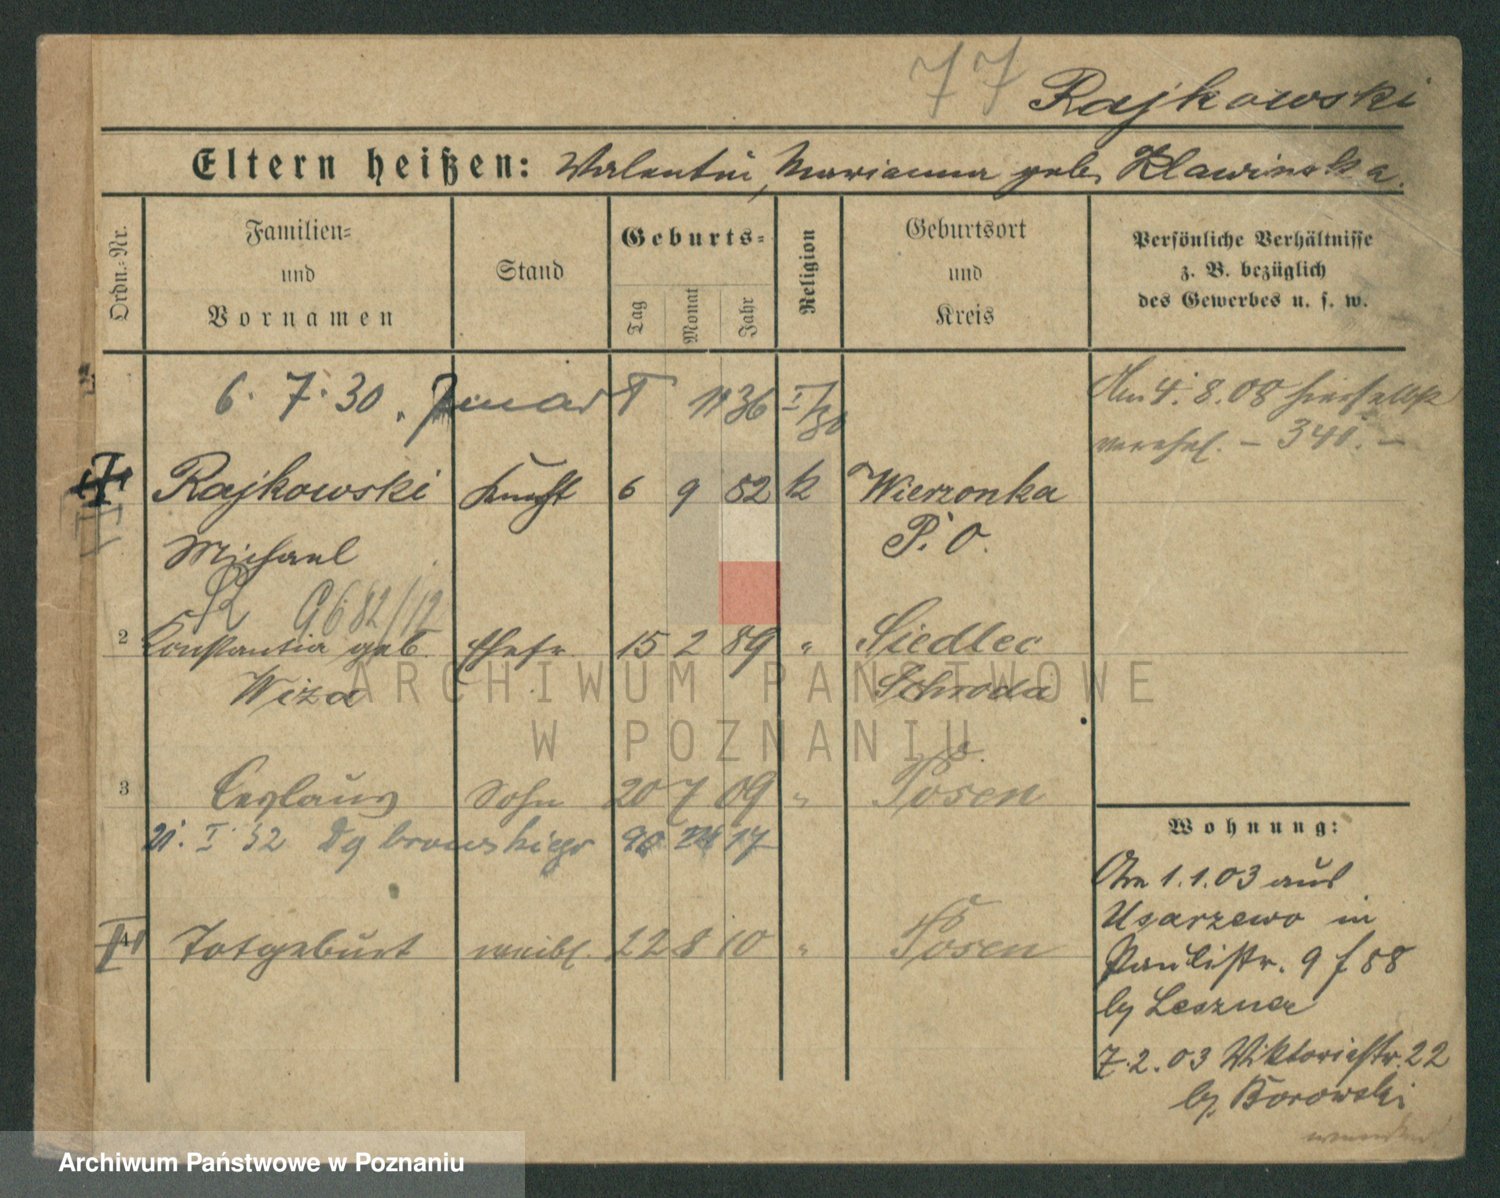 77 Rajkowski
Eltern heißen: Valentin, Marianna geb. Klawinska.
Ordn.-Nr.
Familien-
und
Vornamen
Stand
Geburts-
Tag
Monat
Jahr
Religion
Geburtsort
und
Kreis
Persönliche Verhältnisse
z. B. bezüglich
des Gewerbes u. s. w.
6. 7. 30.
36 I/30
Am 4. 8. 08 hierselbst
verehel. – 341. –
Rajkowski Knecht 6 9 82 k Wierzonka
Michael P. O.
9682/12
2 Konstantia geb. Ehefr. 15 2 89 " Siedlec
Wiza Schroda
3 Ceslaus Sohn 20 7 09 " Posen
21. I 32 Dąbrowskiego 17
4 Totgeburt weibl. 22 8 10 " Posen
Wohnung:
Am 1.1.03 aus
Usarzewo in
Paulistr. 9 f 88
by Leszner
7.2.03 Viktoriastr. 22
by Borowski
wenden!
ARCHIWUM PAŃSTWOWE
W POZNANIU
Archiwum Państwowe w Poznaniu